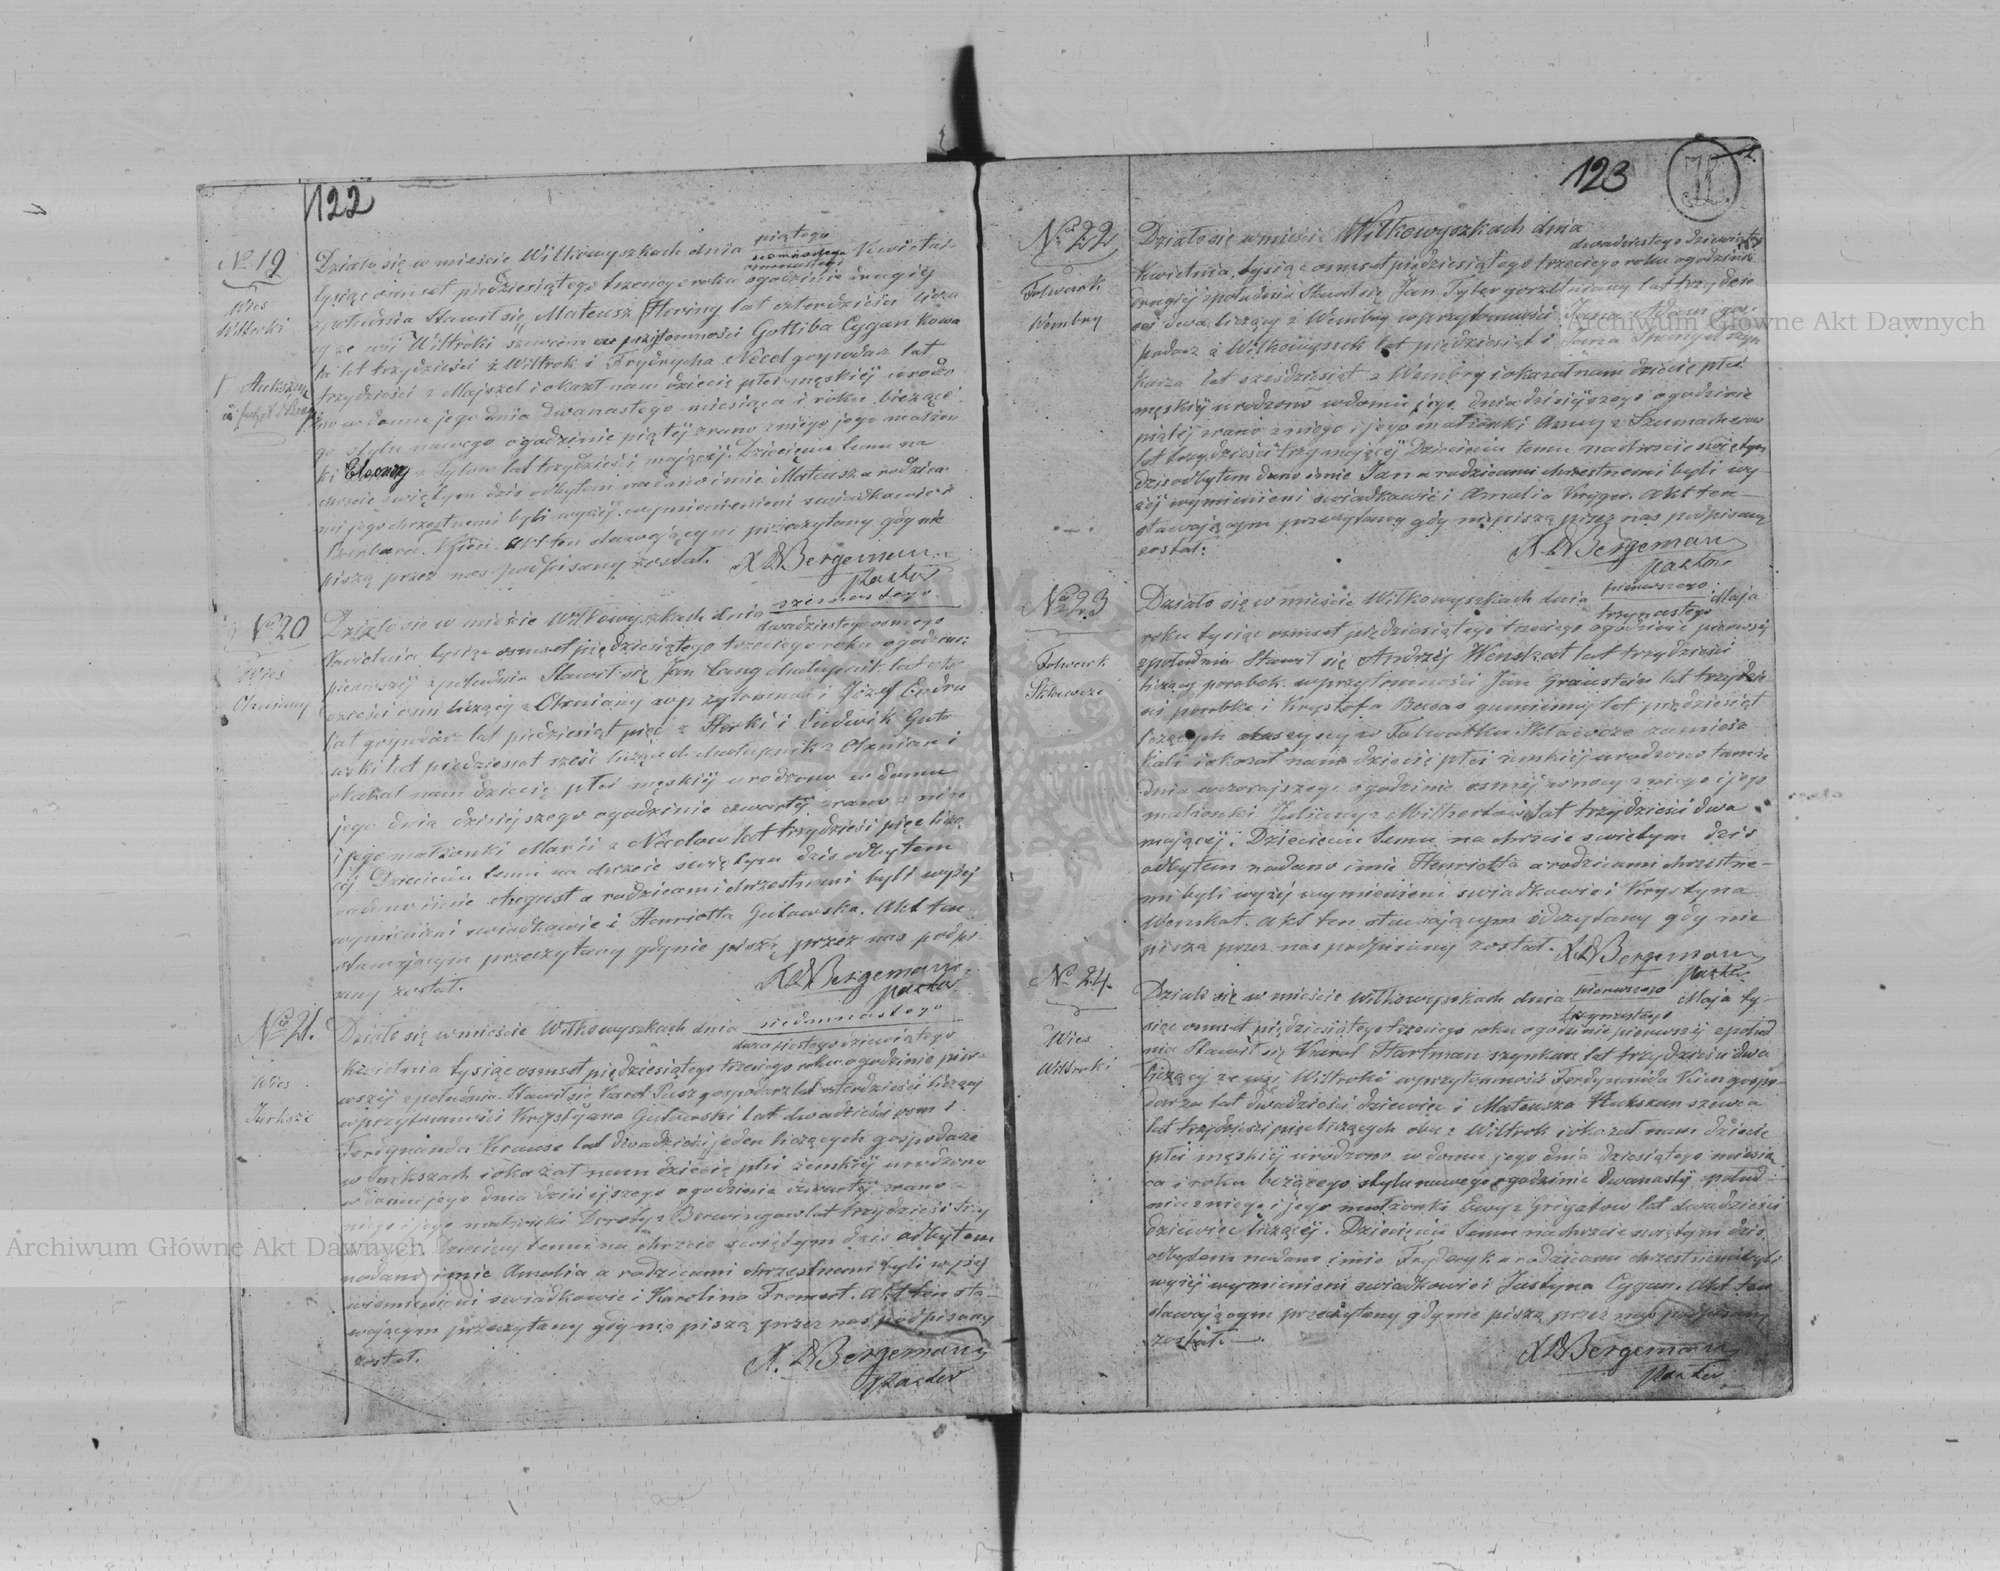 122
No 19
Wies
Wiltroki
Działo się w mieście Wiłkowyszkach dnia piątego Kwietnia
tysiąc ośmset piędziesiątego trzeciego roku o godzinie drugiej
z południa Stawił się Mateusz lat czterdzieści licząc
cy ze wsi Wiltroki szewc w przytomności Gottliba Cygan Kowa
la lat trzydzieści z Wiltrok i Frydrycha Necel gospodarz lat
trzydzieści z Majszel i okazał nam dziecię płci męskiej urodzo
no w domu jego dnia dwunastego miesiąca i roku bieżące
go stylu nowego o godzinie piątej zrano z niego i jego małżon
ki lat trzydzieści mającej. Dziecięciu temu na
chrzcie świętym dziś odbytem nadano imie Mateusz a rodzica
mi jego chrzestnemi byli wyżej wymienieni świadkowie i
Barbara. Akt ten stawającym przeczytany gdy nie
piszą przez nas podpisany został. X Bergemann
Pastor
No 20
Wies
Olxniany
Działo się w mieście Wiłkowyszkach dnia szesnastego
dwudziestego osmego
Kwietnia tysiąc osmset piędziesiątego trzeciego roku o godzinie
pierwszej z południa Stawił się Jan Lang chałupnik lat
dzieści osm liczący z Olxniany w przytomności Józef Endru
lat gospodarz lat piedziesiąt pięć i Ludwik Guto
wski lat piedziesiat sześć liczących chałupnik z Olxnian i
okazał nam dziecię płci męskiej urodzono w domu
jego dnia dzisiejszego o godzinie czwartej zrano z niego
i jego małżonki Marii z Necelow lat trzydzieści pięć liczą
cej Dziecięciu temu na chrzcie świętym dziś odbytem
nadano imie August a rodzicami chrzestnemi byli wyżej
wymienieni świadkowie i Henrietta Gutowska. Akt ten
stawającym przeczytany gdy nie piszą przez nas podpi
sany został. X Bergemann
Pastor
No 21.
Wies
Jurksze
Działo się w mieście Wiłkowyszkach dnia siedemnastego
dwudziestego dziewiątego
Kwietnia tysiąc osmset piędziesiątego trzeciego roku o godzinie pier
wszej z południa. Stawił się Karol Pusz gospodarz lat czterdzieści liczący
w przytomności Krystyana Gutowski lat dwadzieścia osm i
Ferdynanda Krause lat dwadzieści jeden liczących gospodarze
w Jurkszach i okazał nam dziecię płci żenskiej urodzono
w domu jego dnia dzisiejszego o godzinie czwartej zrano z
niego i jego małżonki Doroty z lat trzydzieści trzy
Dziecięciu temu na chrzcie świętym dziś odbytem
nadano imie Amalia a rodzicami chrzestnemi byli wyżej
wiemienieni świadkowie i Karolina Fromert. Akt ten sta
wającym przeczytany gdy nie piszą przez nas podpisany
został. X. Bergemann
Pastor
123
No 22
Folwark
Wembry
Działo się w mieście Wiłkowyszkach dnia
dwudziestego dziewiątego
Kwietnia, tysiąc osmset piędziesiątego trzeciego roku o godzinie
drugiej z południa Stawił się Jan Tyler gorzelniany lat trzydzie
ści dwa liczący z Wembry w przytomności Jana Adam gos
podarz z Wiłkowyszek lat piędziesiąt i
lat sześdziesiąt z Wembry i okazał nam dziecię płci
męskiej urodzono w domu jego dnia dzisiejszego o godzinie
piątej zrano z niego i jego małżonki Anny z Szumacherow
lat trzydzieści trzy mającej Dziecięciu temu na chrzcie świętym
dziś odbytem dano imie Jan a rodzicami chrzestnemi byli wy
żej wymienieni świadkowie i Amalia Kryger. Akt ten
stawającym przeczytany gdy nie piszą przez nas podpisany
został. X Bergemann
Pastor
No 23
Folwark
Działo się w mieście Wiłkowyszkach dnia pierwszego Maja
trzynastego
roku tysiąc osmset piędziesiątego trzeciego o godzinie pierwszej
z południa Stawił się Andrzej Wenskat lat trzydzieści
liczący parobek w przytomności Jan Graustein lat trzydzie
ści parobka i Krystofa gumienny lat piędziesiąt
liczących wszyscy w Folwarku zamiesz
kali i okazał nam dziecię płci żenskiej urodzono tamże
dnia wczorajszego o godzinie osmej w nocy z niego i jego
małżonki Julianny z lat trzydzieści dwa
mającej. Dziecięciu temu na chrzcie świętym dziś
odbytem nadano imie Henrietta a rodzicami chrzestne
mi byli wyżej wymienieni świadkowie i Krystyna
Wenskat. Akt ten stawającym odczytany gdy nie
piszą przez nas podpisany został. X Bergemann
Pastor
No 24.
Wies
Wiltroki
Działo się w mieście Wiłkowyszkach dnia pierwszego Maja ty
trzynastego
siąc osmset piędziesiątego trzeciego roku o godzinie pierwszej z połud
nia Stawił się Karol Hartman szynkarz lat trzydzieści dwa
liczący ze wsi Wiltroki w przytomność Ferdynanda Kien gospo
darza lat dwadzieści dziewięć i Mateusza szewca
lat trzydzieści pięć liczących oba z Wiltrok i okazał nam dziecię
płci męskiej urodzono w domu jego dnia dziesiątego miesią
ca i roku bieżącego stylu nowego o godzinie dwunastej z połud
nia z niego i jego małżonki Ewy z Grigatow lat dwadzieści
dziewięć liczącej. Dziecięciu temu na chrzcie świętym dziś
odbytem nadano imie Frydryk a rodzicami chrzestnemi byli
wyżej wymienieni świadkowie i Justyna Cygan. Akt ten
stawającym przeczytany gdy nie piszą przez nas podpisany
został. X Bergemann
Pastor
Archiwum Główne Akt Dawnych
Archiwum Główne Akt Dawnych